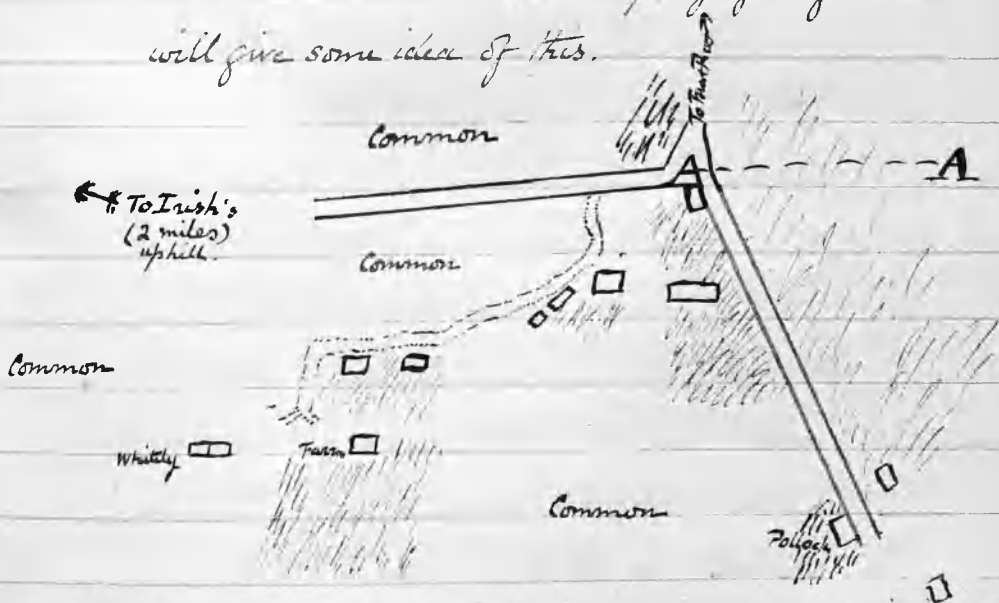 will give some idea of this.
Common
A
To Irish's
(2 miles)
uphill.
Common
Common
Whitely
Farm
Common
Pollock